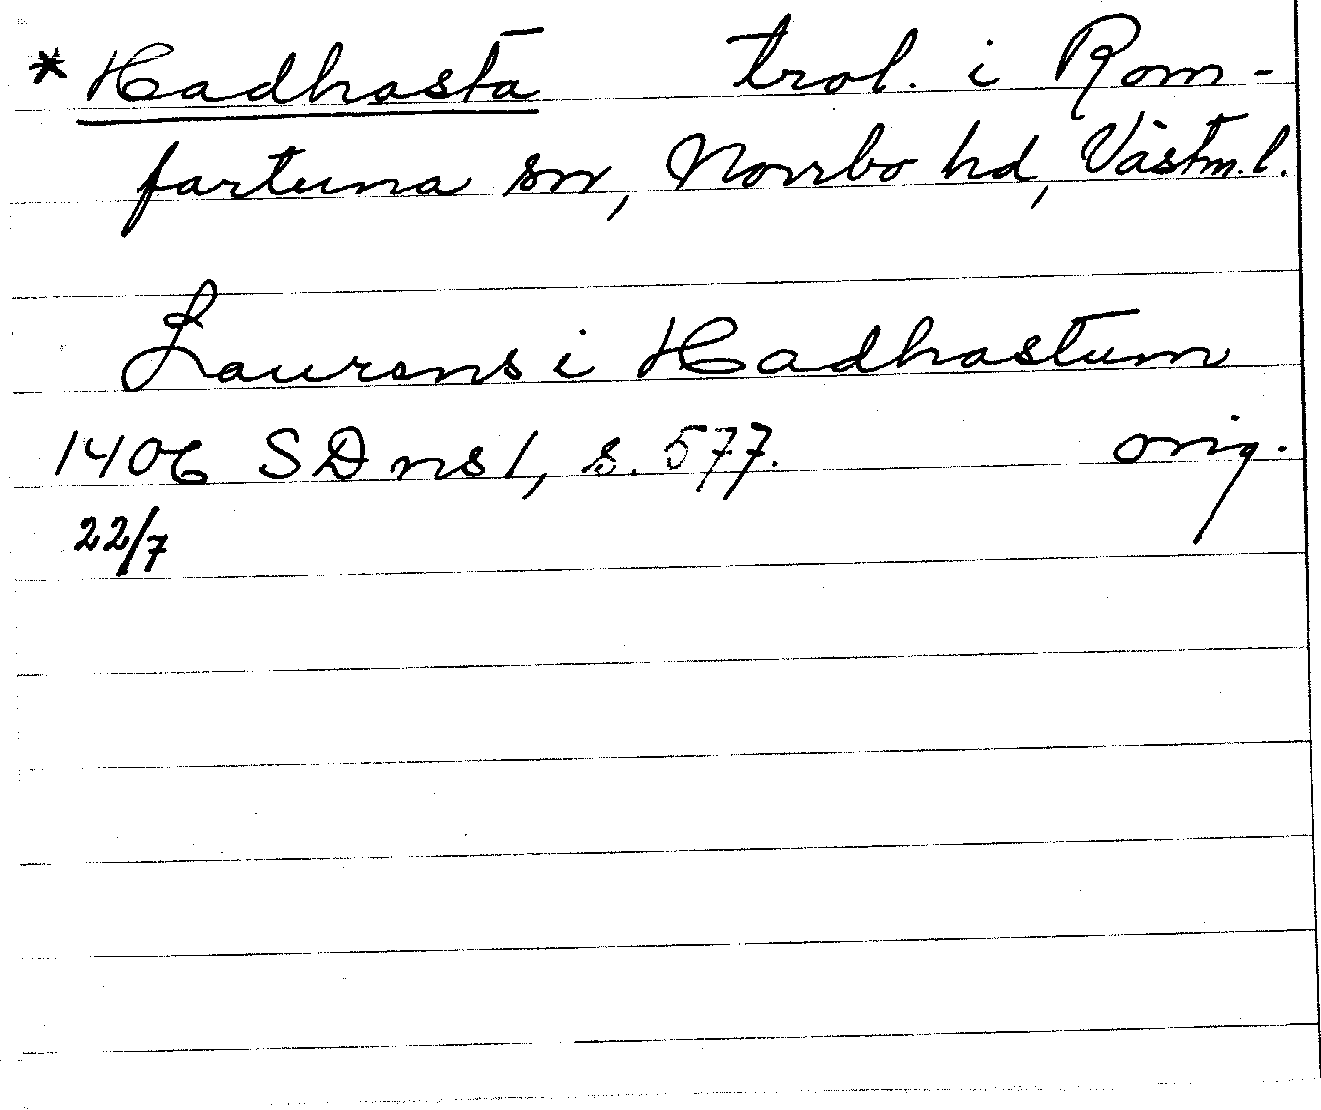 * Hadhasta trol. i Rom-
fartuna sn, Norrbo hd, Västm. l.
Laurens i Hadhastum
1406 SD ns 1, s. 577. orig.
22/7